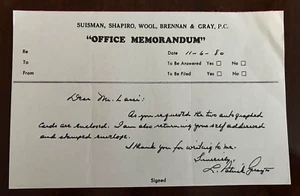 SUISMAN, SHAPIRO, WOOL, BRENNAN & GRAY, P.C.
"OFFICE MEMORANDUM"
Re Date 11-6-80
To To Be Answered Yes ☐ No ☐
From To Be Filed Yes ☐ No ☐
Dear Mr.
As you requested the two autographed
cards are enclosed. I am also returning your self addressed
and stamped envelope.
Thank you for writing to me.
Sincerely,
L. Patrick Gray
Signed